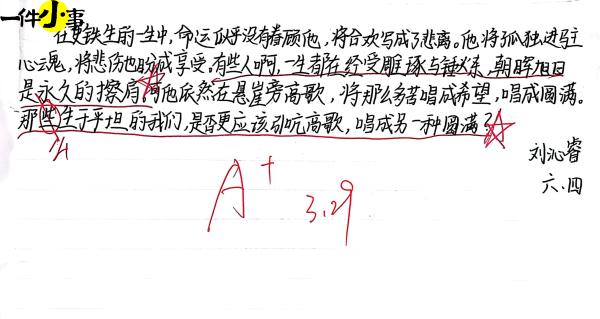 一件小事
在史铁生的一生中,命运似乎没有眷顾他,将合欢写成了悲离。他将孤独进驻
心魂,将悲伤也吟成享受。有些人啊,一生都在经受雕琢与锤炼,朝晖旭日
是永久的擦肩,可他依然在悬崖旁高歌,将那么多苦唱成希望,唱成圆满。
那些生于平坦的我们,是否更应该引吭高歌,唱成另一种圆满?
刘沁睿
六.四
A+
3.29